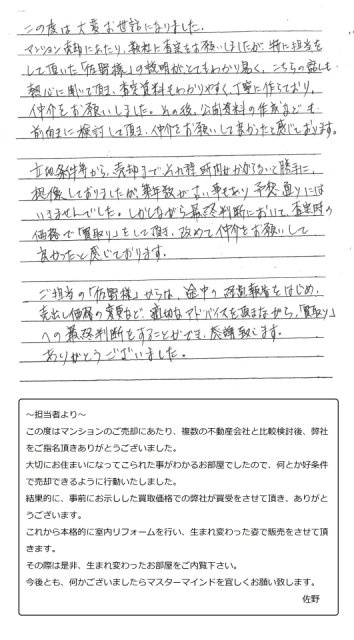 この度は大変お世話になりました。
マンション売却にあたり、数社に査定をお願いしましたが、特に担当を
して頂いた「佐野様」の説明がとてもわかり易く、こちらの話しも
熱心に聞いて頂き、査定資料もわかりやすく、丁寧に作っており、
仲介をお願いしました。その後、公開資料の作成なども
前向きに検討して頂き、仲介をお願いして良かったと感じております。
立地条件等から、売却までそれ程時間はかからないと勝手に
想像しておりましたが、築年数が古い事もあり予想通りには
いきませんでした。しかしながら最終判断において、査定時の
価格で「買取り」をして頂き、改めて仲介をお願いして
良かったと感じております。
ご担当の「佐野様」からは、途中の経過報告をはじめ、
売出し価格の変更など、適切なアドバイスを頂きながら、「買取り」
への最終判断をすることができ、感謝致します。
ありがとうございました。
~担当者より~
この度はマンションのご売却にあたり、複数の不動産会社と比較検討後、弊社
をご指名頂きありがとうございました。
大切にお住まいになってこられた事がわかるお部屋でしたので、何とか好条件
で売却できるように行動いたしました。
結果的に、事前にお示しした買取価格での弊社が買受をさせて頂き、ありがと
うございます。
これから本格的に室内リフォームを行い、生まれ変わった姿で販売をさせて頂
きます。
その際は是非、生まれ変わったお部屋をご内覧下さい。
今後とも、何かございましたらマスターマインドを宜しくお願い致します。
佐野